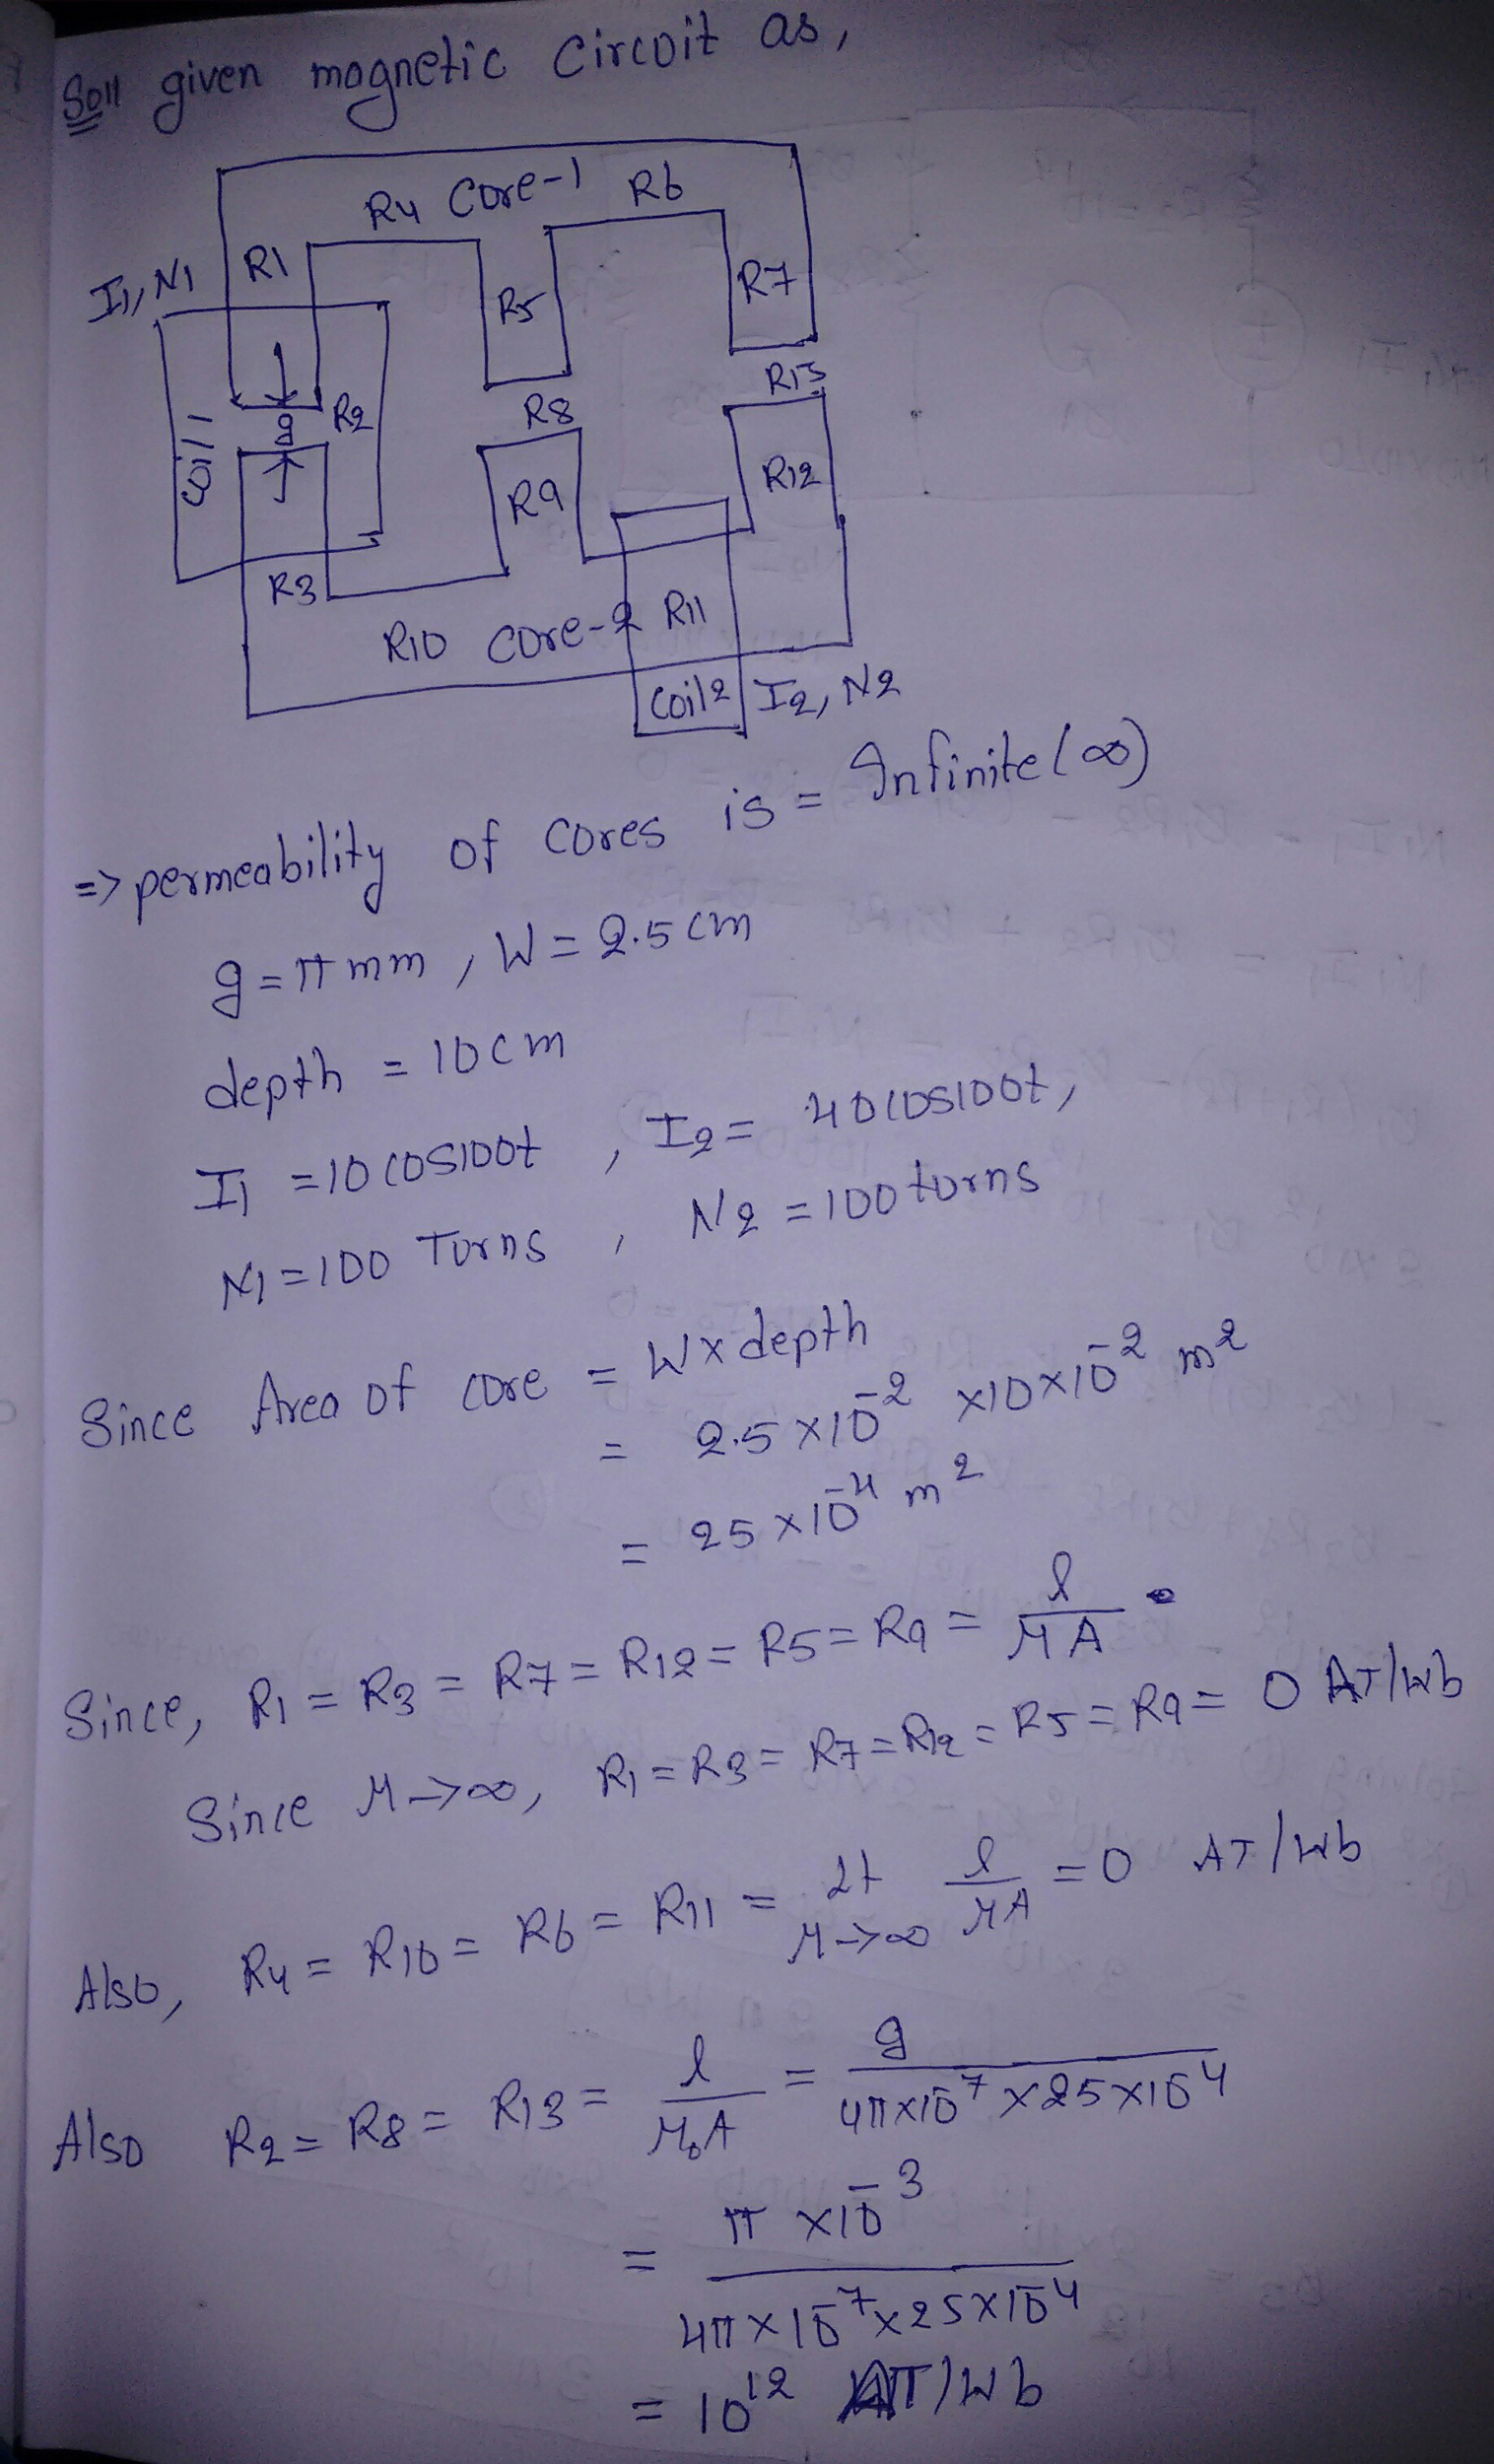 Soln given magnetic Circuit as,
R4 Core-1 R6
I1, N1 R1 R5 R7
R13
Coil 1 g R2 R8
R9 R12
R3
R10 Core-2 R11
Coil 2 I2, N2
=> permeability of cores is = Infinite (∞)
g = π mm, W = 2.5 cm
depth = 10 cm
I1 = 10 cos100t, I2 = 40 cos100t,
N1 = 100 Turns, N2 = 100 turns
Since Area of core = W x depth
= 2.5 × 10⁻² × 10 × 10⁻² m²
= 25 × 10⁻⁴ m²
Since, R1 = R3 = R7 = R12 = R5 = R9 = l / μA
Since μ → ∞, R1 = R3 = R7 = R12 = R5 = R9 = 0 AT/Wb
Also, R4 = R10 = R6 = R11 = lt μ→∞ l / μA = 0 AT/Wb
Also R2 = R8 = R13 = l / μ₀A = g / 4π×10⁻⁷ × 25×10⁻⁴
= π × 10⁻³ / 4π × 10⁻⁷ × 25 × 10⁻⁴
= 10¹² AT/Wb